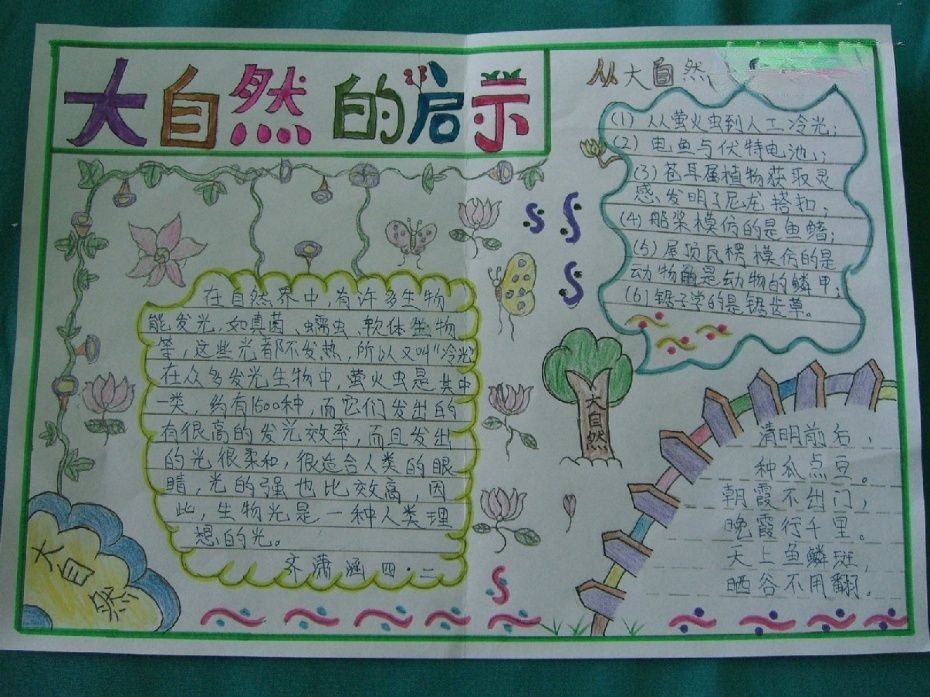 大自然的启示
在自然界中,有许多生物
能发光,如真菌、蠕虫、软体生物
等,这些光都不发热,所以又叫“冷光”
在众多发光生物中,萤火虫是其中
一类,约有1500种,而它们发出的
有很高的发光效率,而且发出
的光很柔和,很适合人类的眼
睛,光的强也比效高,因
此,生物光是一种人类理
想的光。
齐潇涵 四·二
大自然
从大自然
(1)从萤火虫到人工冷光;
(2)电鱼与伏特电池;
(3)苍耳属植物获取灵
感发明了尼龙搭扣;
(4)船桨模仿的是鱼鳍;
(5)屋顶瓦楞模仿的是
动物的是动物的鳞甲;
(6)锯子学的是锯齿草。
大自然
清明前后,
种瓜点豆。
朝霞不出门,
晚霞行千里。
天上鱼鳞斑,
晒谷不用翻。